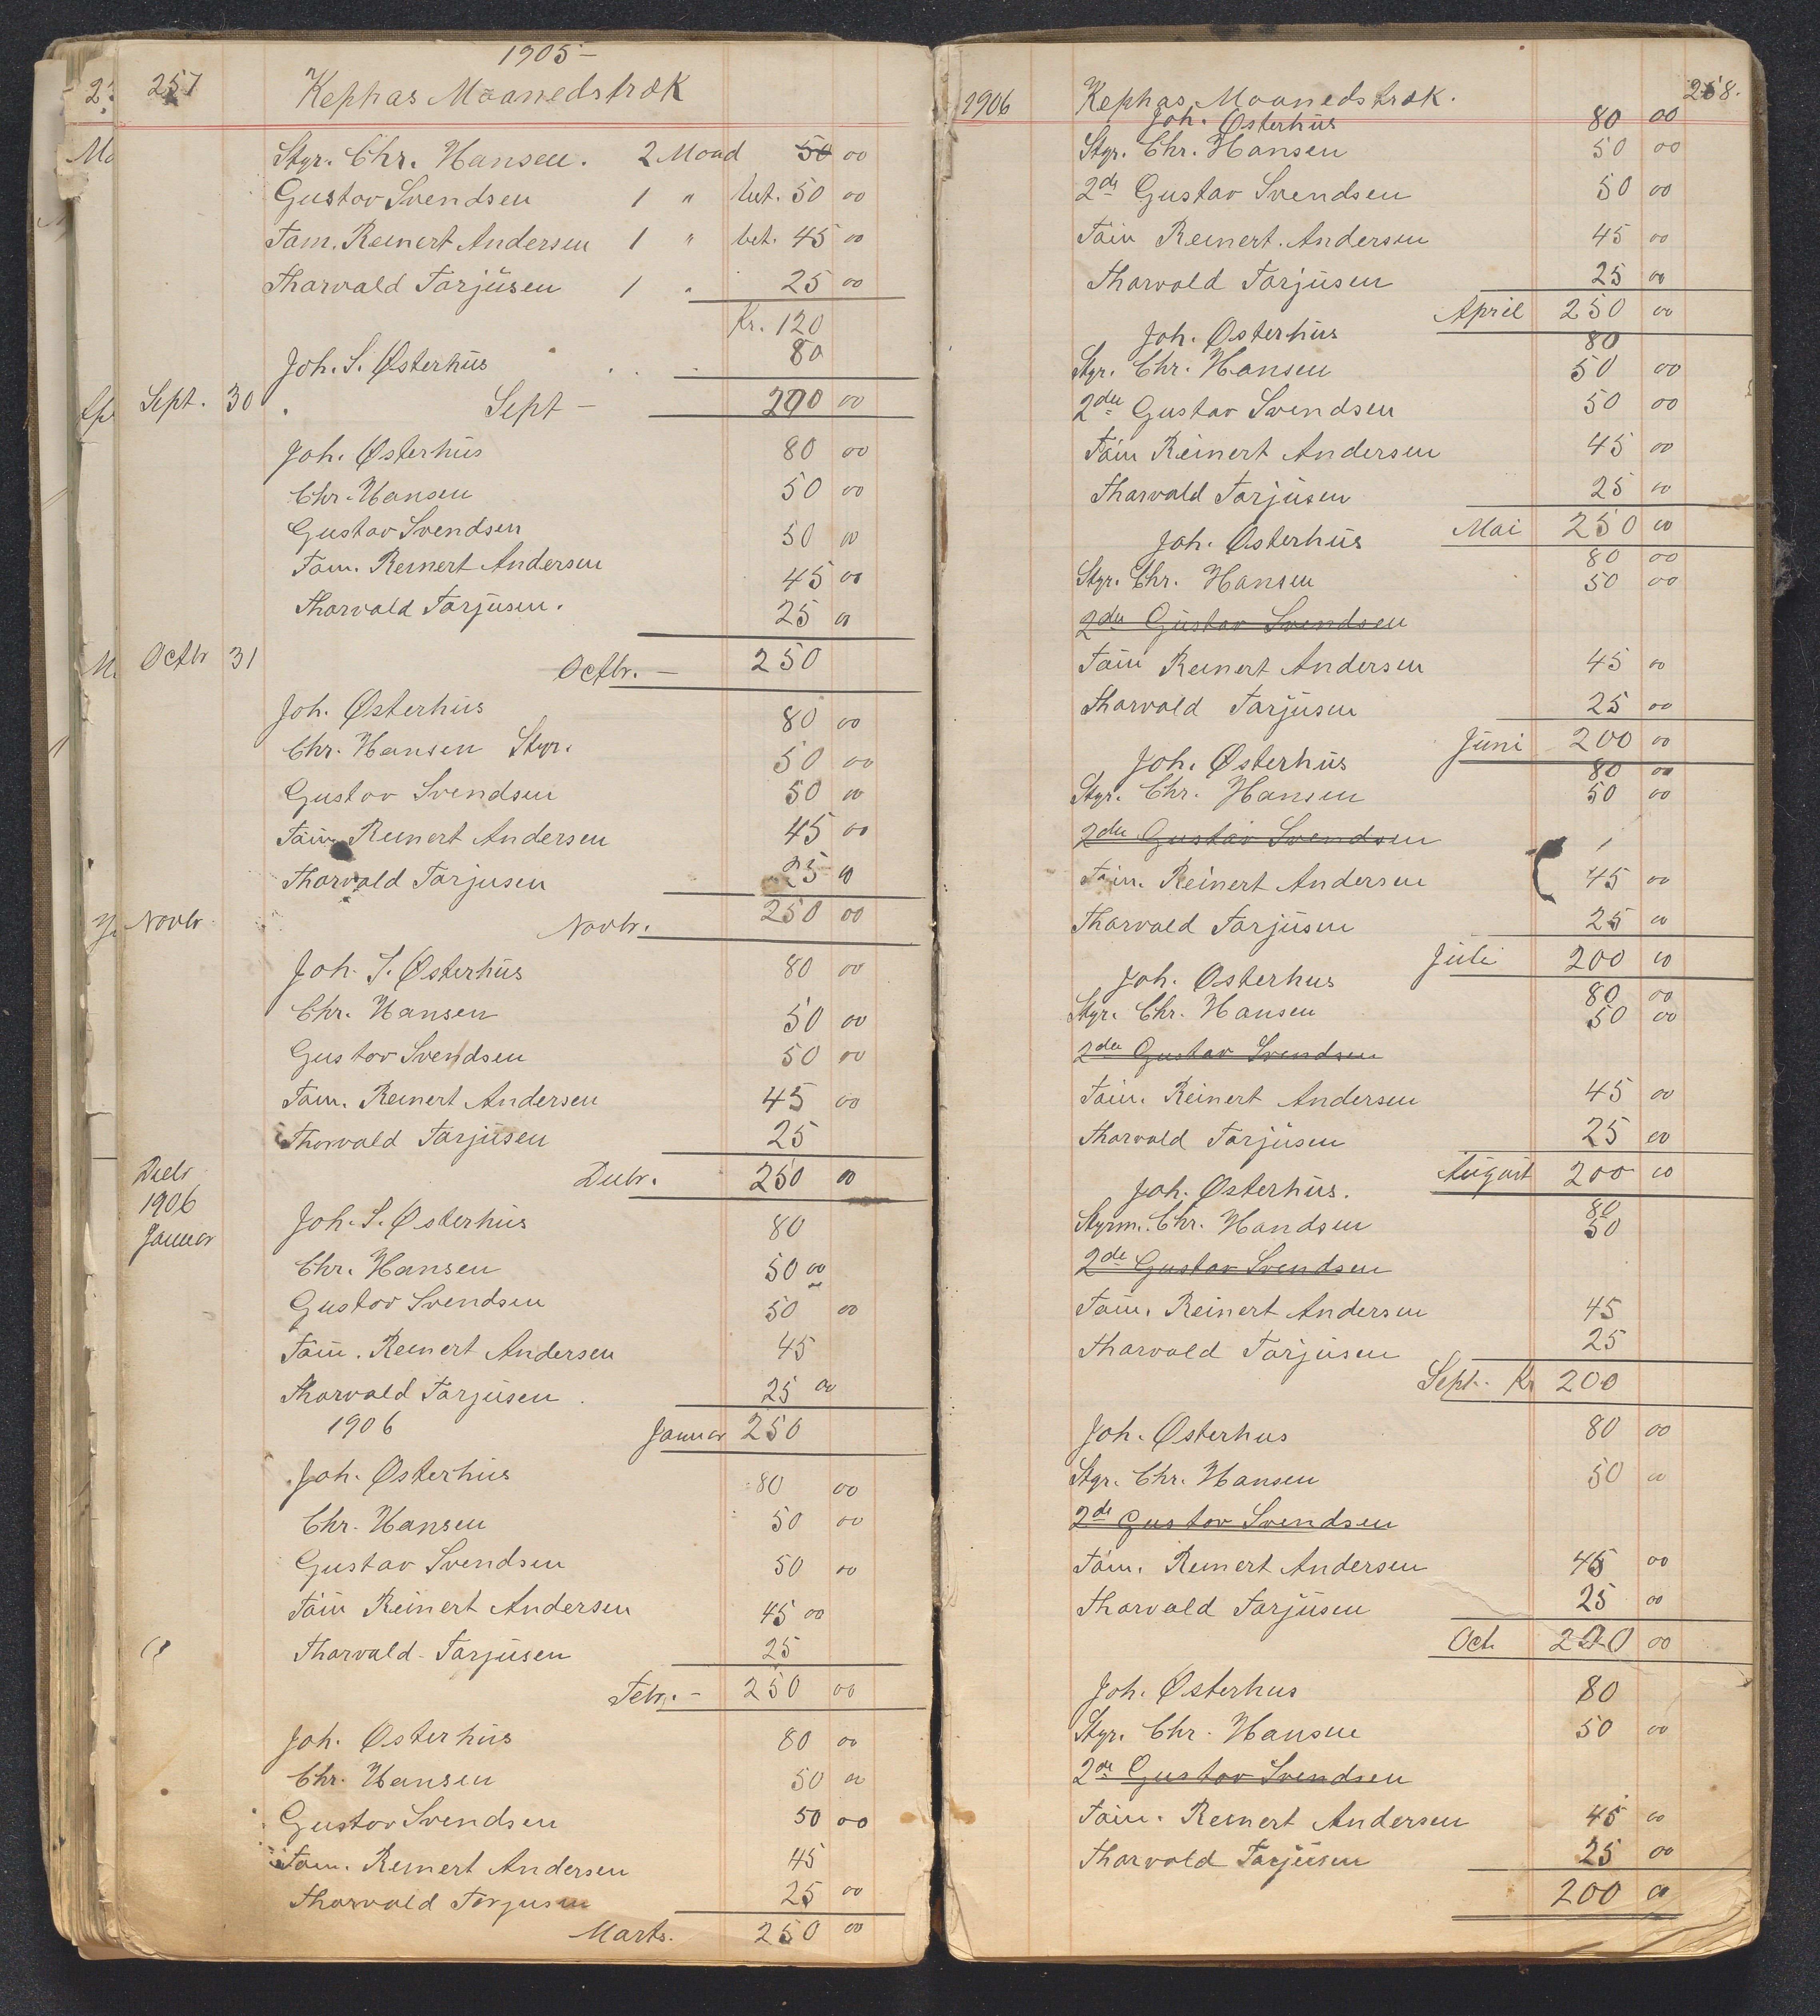 1905 –
257 Kephas Maanedstræk
Styr. Chr. Hansen. 2 Maad 50 00
Gustav Svendsen 1 " bet. 50 00
Tøm. Reinert Andersen 1 " bet. 45 00
Tharvald Tarjüsen 1 " 25 00
Kr. 120
Joh. S. Østerhüs . . . 80
Sept. 30 Sept – 200 00
Joh. Østerhüs 80 00
Chr. Hansen 50 00
Gustav Svendsen 50 00
Tøm. Reinert Andersen 45 00
Tharvald Tarjüsen. 25 00
Octbr 31 Octbr. – 250
Joh. Østerhüs 80 00
Chr. Hansen Styr. 50 00
Gustav Svendsen 50 00
Tøm. Reinert Andersen 45 00
Tharvald Tarjusen 25 00
Novbr Novbr. 250 00
Joh. S. Østerhüs 80 00
Chr. Hansen 50 00
Gustav Svendsen 50 00
Tøm. Reinert Andersen 45 00
Tharvald Tarjüsen 25
Decbr Decbr. 250 00
1906
Januar Joh. S. Østerhüs 80
Chr. Hansen 50 00
Gustav Svendsen 50 00
Tøm. Reinert Andersen 45
Tharvald Tarjüsen 25 00
1906 Januar 250
Joh. Østerhüs 80 00
Chr. Hansen 50 00
Gustav Svendsen 50 00
Tøm Reinert Andersen 45 00
Tharvald Tarjüsen 25
Febr. – 250 00
Joh. Østerhüs 80 00
Chr. Hansen 50 00
Gustav Svendsen 50 00
Tøm. Reinert Andersen 45
Tharvald Tarjusen 25 00
Marts. 250 00
1906 Kephas Maanedstræk. 258.
Joh. Østerhüs 80 00
Styr. Chr. Hansen 50 00
2de Gustav Svendsen 50 00
Tøm Reinert. Andersen 45 00
Tharvald Tarjüsen 25 00
April 250 00
Joh. Østerhüs 80
Styr. Chr. Hansen 50 00
2den Gustav Svendsen 50 00
Tøm Reinert Andersen 45 00
Tharvald Tarjüsen 25 00
Mai 250 00
Joh. Østerhüs 80 00
Styr. Chr. Hansen 50 00
2den Gustav Svendsen
Tøm Reinert Andersen 45 00
Tharvald Tarjüsen 25 00
Jüni 200 00
Joh. Østerhüs 80 00
Styr. Chr. Hansen 50 00
2den Gustav Svendsen
Tøm. Reinert Andersen 45 00
Tharvald Tarjüsen 25 00
Jüli 200 00
Joh. Østerhus 80 00
Styr. Chr. Hansen 50 00
2den Gustav Svendsen
Tøm. Reinert Andersen 45 00
Tharvald Tarjüsen 25 00
Aügust 200 00
Joh. Østerhüs. 80
Styrm. Chr. Handsen 50
2de Gustav Svendsen
Tøm. Reinert Andersen 45
Tharvald Tarjüsen 25
Sept. Kr 200
Joh. Østerhus 80 00
Styr. Chr. Hansen 50 00
2de Gustav Svendsen
Tøm. Reinert Andersen 45 00
Tharvald Tarjüsen 25 00
Oct. 200 00
Joh. Østerhus 80
Styr. Chr. Hansen 50 00
2de Gustav Svendsen
Tøm. Reinert Andersen 45 00
Tharvald Tarjüsen 25 00
200 00